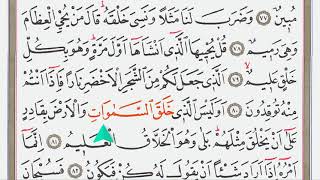 مُبِينٌ ٧٧ وَضَرَبَ لَنَا مَثَلًا وَنَسِيَ خَلْقَهُ ۖ قَالَ مَنْ يُحْيِي الْعِظَامَ
وَهِيَ رَمِيمٌ ٧٨ قُلْ يُحْيِيهَا الَّذِي أَنْشَأَهَا أَوَّلَ مَرَّةٍ ۖ وَهُوَ بِكُلِّ
خَلْقٍ عَلِيمٌ ٧٩ الَّذِي جَعَلَ لَكُمْ مِنَ الشَّجَرِ الْأَخْضَرِ نَارًا فَإِذَا أَنْتُمْ
مِنْهُ تُوقِدُونَ ٨٠ أَوَلَيْسَ الَّذِي خَلَقَ السَّمٰوَاتِ وَالْأَرْضَ بِقَادِرٍ
عَلَىٰ أَنْ يَخْلُقَ مِثْلَهُمْ ۚ بَلَىٰ وَهُوَ الْخَلَّاقُ الْعَلِيمُ ٨١ إِنَّمَا
أَمْرُهُ إِذَا أَرَادَ شَيْئًا أَنْ يَقُولَ لَهُ كُنْ فَيَكُونُ ٨٢ فَسُبْحَانَ